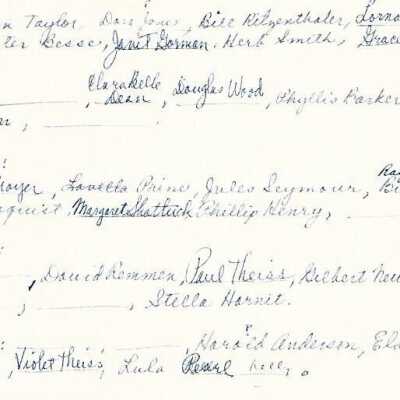 n Taylor, Don Jones, Bill Ritzenthaler, Lorna
ter Besse, Janet Gorman, Herb Smith, Grace
Clarabelle
Dean, Douglas Wood, Phyllis Barker
Ray
oyer, Lovella Prine, Jules Seymour, Bi
quist, Margaret Shattuck, Phillip Henry,
David Lemmen, Paul Theiss, Gilbert Neu
Stella Hornit.
Harold Anderson, El
Violet Theiss, Lula Pearl Kelly.